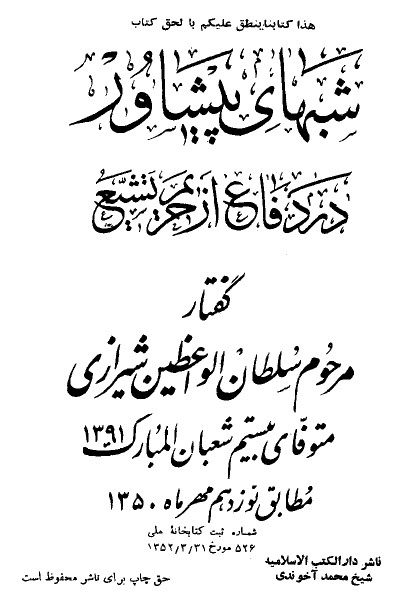 هذا کتابنا ینطق علیکم بالحق کتاب
شبهای پیشاور
در دفاع از حریم تشیع
گفتار
مرحوم سلطان الواعظین شیرازی
متوفای بیستم شعبان المبارک ۱۳۹۱
مطابق نوزدهم مهر ماه ۱۳۵۰
شماره ثبت کتابخانهٔ ملی
۵۲۶ مورخ ۱۳۵۲/۳/۳۱
ناشر دارالکتب الاسلامیه
شیخ محمد آخوندی
حق چاپ برای ناشر محفوظ است